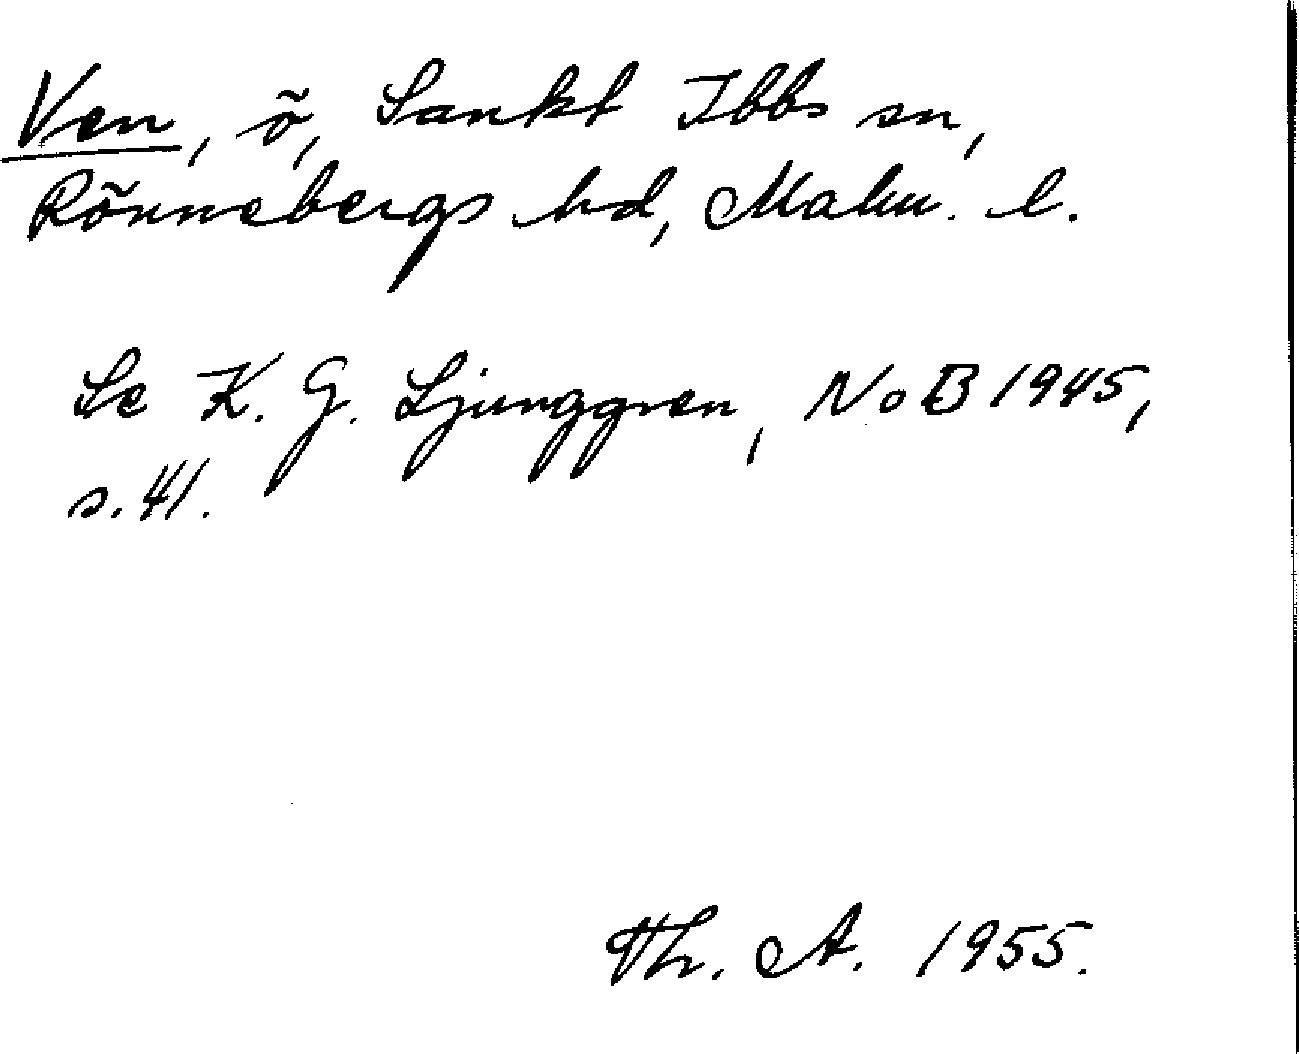 Ven, ö, Sankt Ibbs sn,
Rönnebergs hd, Malm. l.
Se K. G. Ljunggren, NoB 1945,
s. 41.
Th. A. 1955.